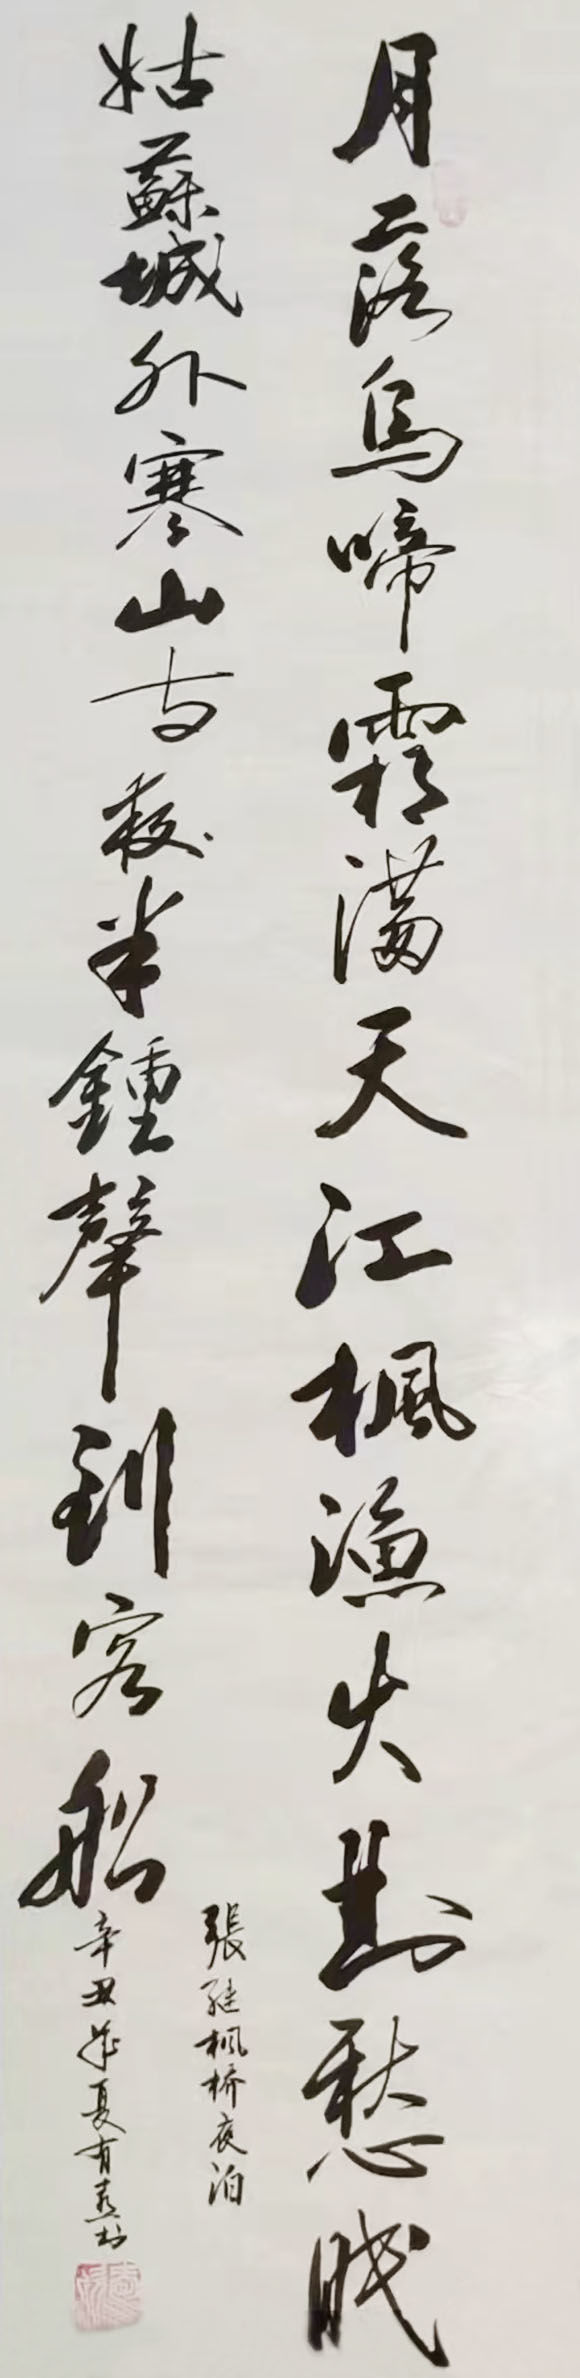 月落烏啼霜滿天江楓漁火對愁眠
姑蘇城外寒山寺夜半鍾聲到客船
張继楓桥夜泊
辛丑年夏有